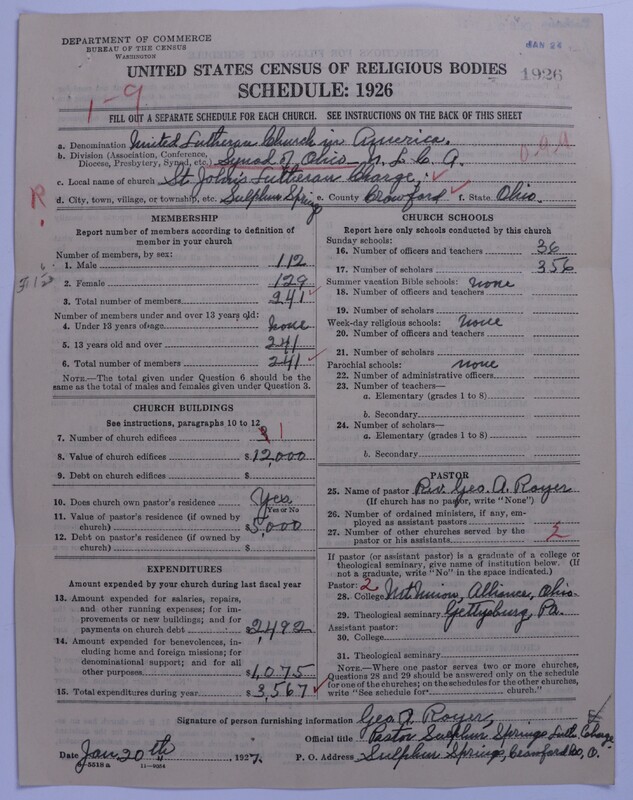 DEPARTMENT OF COMMERCE
BUREAU OF THE CENSUS
WASHINGTON
JAN 24
1926
UNITED STATES CENSUS OF RELIGIOUS BODIES
SCHEDULE: 1926
1-9
FILL OUT A SEPARATE SCHEDULE FOR EACH CHURCH. SEE INSTRUCTIONS ON THE BACK OF THIS SHEET
a. Denomination United Lutheran Church in America.
b. Division (Association, Conference, Diocese, Presbytery, Synod, etc.) Synod of Ohio U.L.C.A.
c. Local name of church St. John's Lutheran Charge.
d. City, town, village, or township, etc. Sulphur Springs e. County Crawford f. State Ohio.
R.
MEMBERSHIP
Report number of members according to definition of
member in your church
Number of members, by sex:
1. Male 112
2. Female 129
3. Total number of members 241
Number of members under and over 13 years old:
4. Under 13 years of age none
5. 13 years old and over 241
6. Total number of members 241
NOTE.—The total given under Question 6 should be
same as the total of males and females given under Question 3.
CHURCH BUILDINGS
See instructions, paragraphs 10 to 12
7. Number of church edifices 1
8. Value of church edifices $12,000
9. Debt on church edifices $
10. Does church own pastor's residence Yes
Yes or No
11. Value of pastor's residence (if owned by
church) $5,000
12. Debt on pastor's residence (if owned by
church) $
EXPENDITURES
Amount expended by your church during last fiscal year
13. Amount expended for salaries, repairs,
and other running expenses; for im-
provements or new buildings; and for
payments on church debt $2,492
14. Amount expended for benevolences, in-
cluding home and foreign missions; for
denominational support; and for all
other purposes $1,075
15. Total expenditures during year $3,567
CHURCH SCHOOLS
Report here only schools conducted by this church
Sunday schools:
16. Number of officers and teachers 36
17. Number of scholars 356
Summer vacation Bible schools: none
18. Number of officers and teachers
19. Number of scholars
Week-day religious schools: none
20. Number of officers and teachers
21. Number of scholars
Parochial schools: none
22. Number of administrative officers
23. Number of teachers—
a. Elementary (grades 1 to 8)
b. Secondary
24. Number of scholars—
a. Elementary (grades 1 to 8)
b. Secondary
PASTOR
25. Name of pastor Rev. Geo. A. Royer
(If church has no pastor, write "None")
26. Number of ordained ministers, if any, em-
ployed as assistant pastors
27. Number of other churches served by the
pastor or his assistants 2
If pastor (or assistant pastor) is a graduate of a college or
theological seminary, give name of institution below. (If
not a graduate, write "No" in the space indicated.)
Pastor: 2
28. College Mt Union, Alliance, Ohio
29. Theological seminary Gettysburg, Pa.
Assistant pastor:
30. College
31. Theological seminary
NOTE.—Where one pastor serves two or more churches,
Questions 28 and 29 should be answered only on the schedule
for one of the churches; on the schedules for the other churches,
write "See schedule for church."
Signature of person furnishing information Geo. A. Royer
Official title Pastor Sulphur Springs Luth. Charge
Date Jan 20th, 1927. P. O. Address Sulphur Springs, Crawford Co, O.
8-5519 a 11-9284